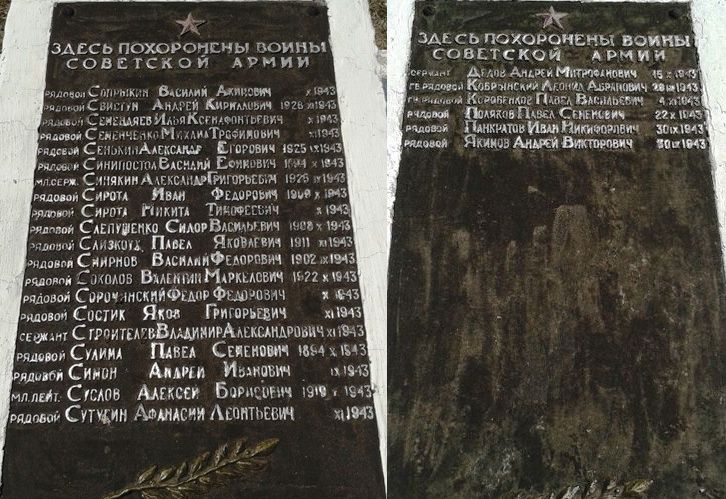 ЗДЕСЬ ПОХОРОНЕНЫ ВОИНЫ
СОВЕТСКОЙ АРМИИ
РЯДОВОЙ СОПРЫКИН ВАСИЛИЙ АКИМОВИЧ X 1943
РЯДОВОЙ СВИСТУН АНДРЕЙ КИРИЛЛОВИЧ 1926 XI 1943
РЯДОВОЙ СЕМЕНДЯЕВ ИЛЬЯ КСЕНАФОНТЬЕВИЧ XI 1943
РЯДОВОЙ СЕМЕНЧЕНКО МИХАИЛ ТРОФИМОВИЧ XI 1943
РЯДОВОЙ СЕНЬКИН АЛЕКСАНДР ЕГОРОВИЧ 1925 IX 1943
РЯДОВОЙ СИНИПОСТОЛ ВАСИЛИЙ ЕФИМОВИЧ X 1943
МЛ.СЕРЖ. СИНЯКИН АЛЕКСАНДР ГРИГОРЬЕВИЧ 1925 IX 1943
РЯДОВОЙ СИРОТА ИВАН ФЕДОРОВИЧ X 1943
РЯДОВОЙ СИРОТА НИКИТА ТИМОФЕЕВИЧ X 1943
РЯДОВОЙ СЛЕПУШЕНКО СИДОР ВАСИЛЬЕВИЧ X 1943
РЯДОВОЙ СЛИЗКОУХ ПАВЕЛ ЯКОВЛЕВИЧ 1911 XI 1943
РЯДОВОЙ СМИРНОВ ВАСИЛИЙ ФЕДОРОВИЧ 1902 XI 1943
РЯДОВОЙ СОКОЛОВ ВАЛЕНТИН МАРКЕЛОВИЧ 1922 X 1943
РЯДОВОЙ СОРОЧИНСКИЙ ФЕДОР ФЕДОРОВИЧ X 1943
РЯДОВОЙ СОСТИК ЯКОВ ГРИГОРЬЕВИЧ XI 1943
СЕРЖАНТ СТРОИТЕЛЕВ ВЛАДИМИР АЛЕКСАНДРОВИЧ XI 1943
РЯДОВОЙ СУЛИМА ПАВЕЛ СЕМЕНОВИЧ 1894 X 1943
РЯДОВОЙ СИМОН АНДРЕЙ ИВАНОВИЧ IX 1943
МЛ.ЛЕЙТ. СУСЛОВ АЛЕКСЕЙ БОРИСОВИЧ 1943
РЯДОВОЙ СУТУГИН АФАНАСИЙ ЛЕОНТЬЕВИЧ XI 1943
ЗДЕСЬ ПОХОРОНЕНЫ ВОИНЫ
СОВЕТСКОЙ АРМИИ
СЕРЖАНТ ДЕДОВ АНДРЕЙ МИТРОФАНОВИЧ 15 X 1943
ГВ.РЯДОВОЙ КОБРЫНСКИЙ ЛЕОНИД АБРАМОВИЧ 1943
ГВ.РЯДОВОЙ КОРОБЕНКОВ ПАВЕЛ ВАСИЛЬЕВИЧ 4 XI 1943
РЯДОВОЙ ПОЛЯКОВ ПАВЕЛ СЕМЕНОВИЧ 22 X 1943
РЯДОВОЙ ПАНКРАТОВ ИВАН НИКИФОРОВИЧ 30 IX 1943
РЯДОВОЙ ЯКИМОВ АНДРЕЙ ВИКТОРОВИЧ 30 IX 1943